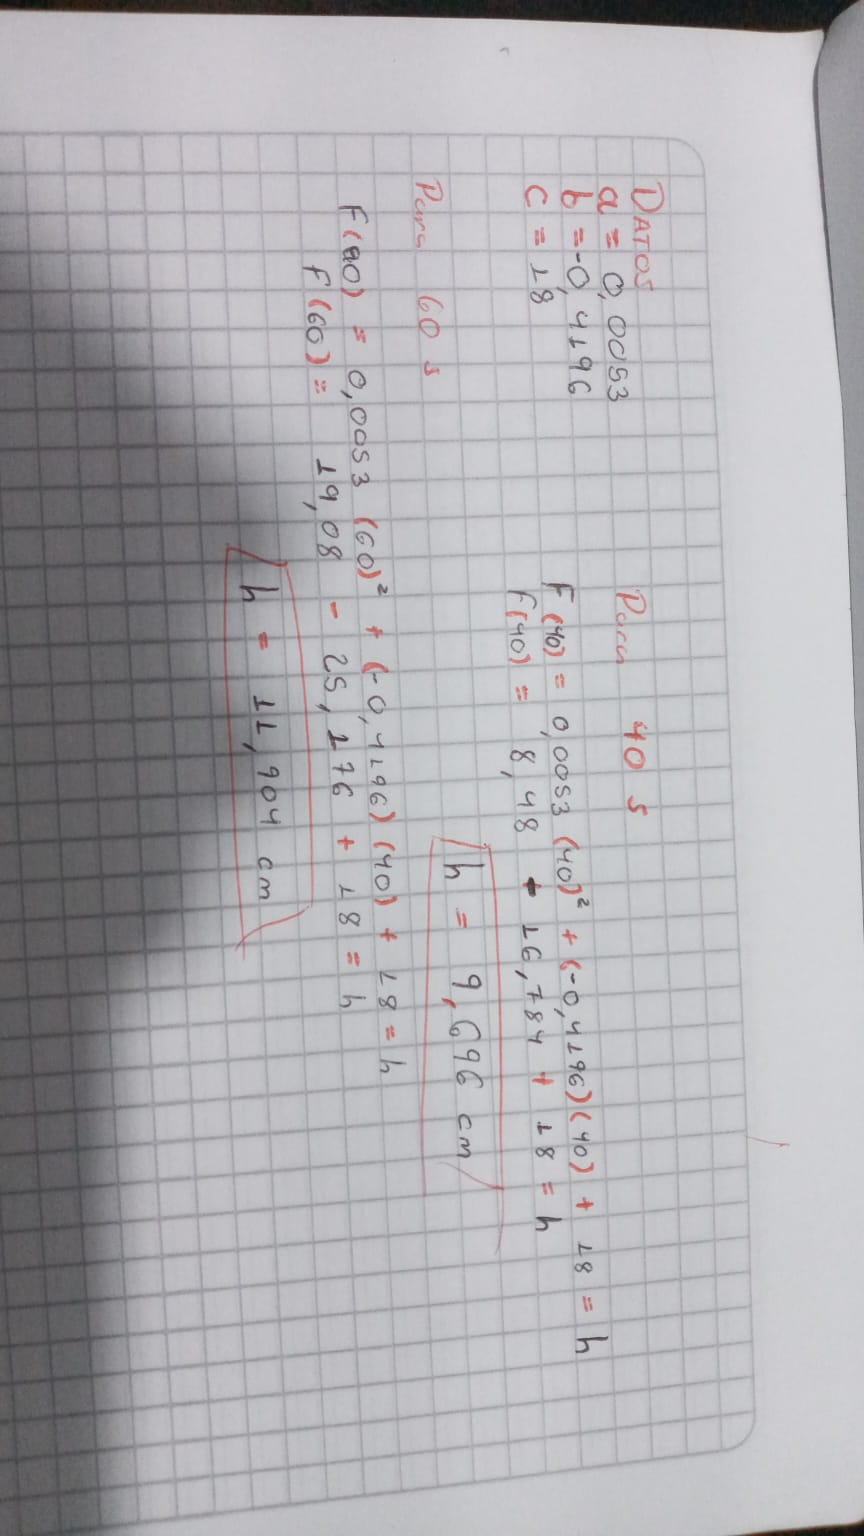 DATOS
a = 0,0053
b = -0,4196
c = 18
Para 40 s
F(40) = 0,0053 (40)² + (-0,4196)(40) + 18 = h
F(40) = 8,48 - 16,784 + 18 = h
h = 9,696 cm
Para 60 s
F(60) = 0,0053 (60)² + (-0,4196) (40) + 18 = h
F(60) = 19,08 - 25,176 + 18 = h
h = 11,904 cm